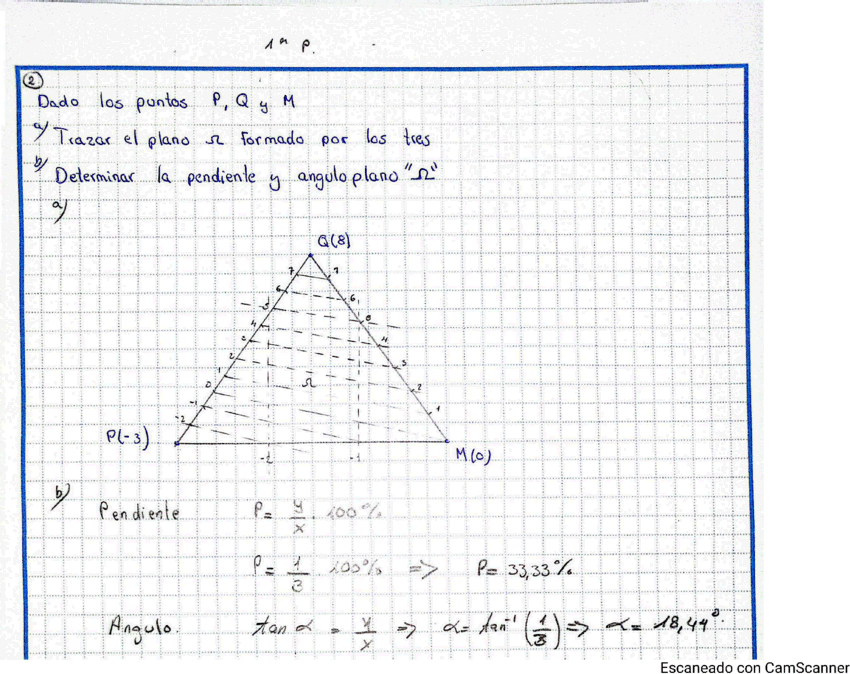 1er P.
2
Dado los puntos P, Q y M
a) Trazar el plano Ω formado por los tres
b) Determinar la pendiente y angulo plano "Ω"
a)
Q(8)
7 7
6 6
5 5
4 4
3 3
2 2
1 1
0
-1
-2
Ω
P(-3) M(0)
-2 -1
b)
Pendiente P= y/x . 100%
P= 1/3 . 100% => P= 33,33%
Angulo. tan α = y/x => α= tan⁻¹ (1/3) => α= 18,44°.
Escaneado con CamScanner